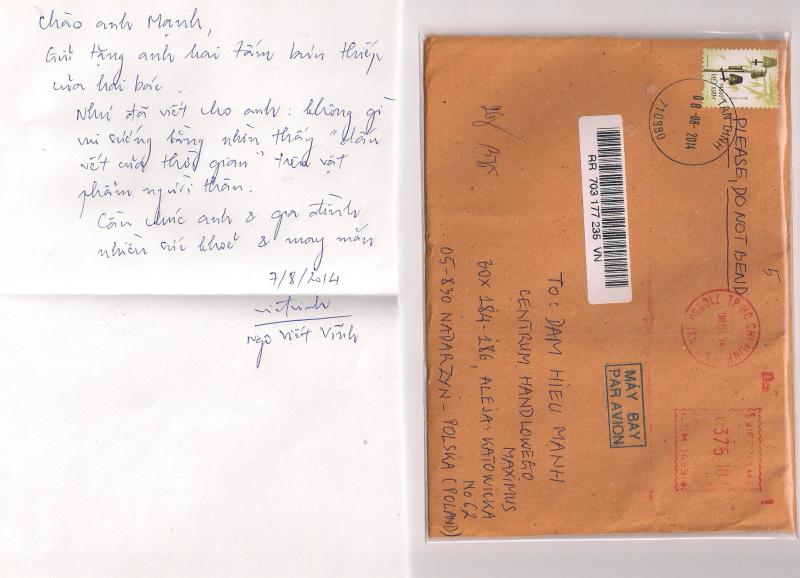 Chào anh Mạnh,
Gửi tặng anh hai tấm bưu thiếp
của hai bác.
Như đã viết cho anh: không gì
vui sướng bằng nhìn thấy "dấu
vết của thời gian" trên vật
phẩm người thân.
Cầu chúc anh & gia đình
nhiều sức khoẻ & may mắn
7/8/2014
Ngô Viết Vĩnh
VIETNAM
TAN DINH
08-08-2014
710980
PLEASE, DO NOT BEND
5
RR 703 177 235 VN
TP HO CHI MINH
MÁY BAY
PAR AVION
To: DAM HIEU MANH
CENTRUM HANDLOWEGO
MAXIMUS
BOX 184-186, ALEJA: KATOWICKA
No 62
05-830 NADARZYN - POLSKA (POLAND)